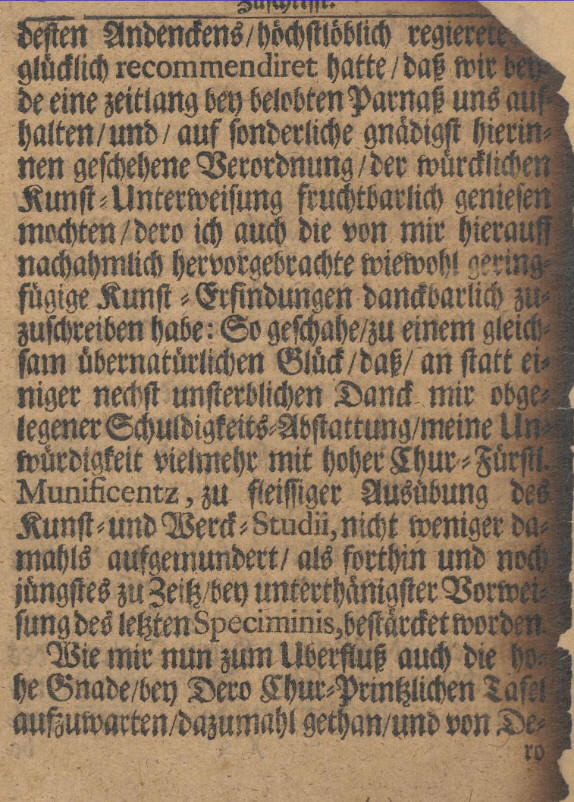 Zuschrifft.
desten Andenckens/höchstlöblich regierete
glücklich recommendiret hatte/daß wir bey-
de eine zeitlang bey belobten Parnaß uns auf-
halten/und/auf sonderliche gnädigst hierin-
nen geschehene Verordnung/der würcklichen
Kunst-Unterweisung fruchtbarlich geniesen
mochten/dero ich auch die von mir hierauff
nachahmlich hervorgebrachte wiewohl gering-
fügige Kunst-Erfindungen danckbarlich zu-
zuschreiben habe: So geschahe/zu einem gleich-
sam übernatürlichen Glück/daß/an statt ei-
niger nechst unsterblichen Danck mir obge-
legener Schuldigkeits-Abstattung/meine Un-
würdigkeit vielmehr mit hoher Chur-Fürstl.
Munificentz, zu fleissiger Ausübung des
Kunst-und Werck-Studii, nicht weniger da-
mahls aufgemundert/als forthin und noch
jüngstes zu Zeitz/bey unterthänigster Vorwei-
sung des letzten Speciminis, bestärcket worden.
Wie mir nun zum Uberfluß auch die ho-
he Gnade/bey Dero Chur-Printzlichen Tafel
aufzuwarten/dazumahl gethan/und von De-
ro